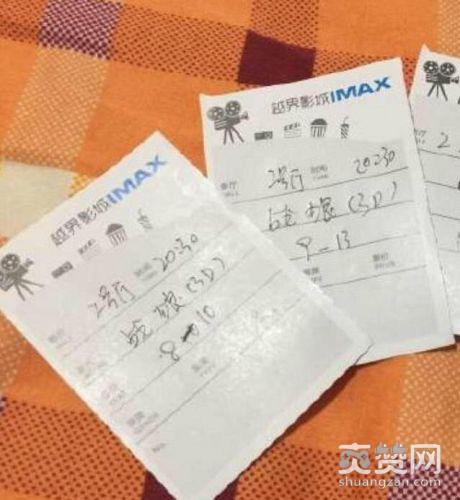 越界影城IMAX
2号厅 时间 20:30
战狼(3D)
8-10
越界影城IMAX
影厅 2号厅 时间 20:30
战狼(3D)
9-13
票价
2
爽赞网
shuangzan.com